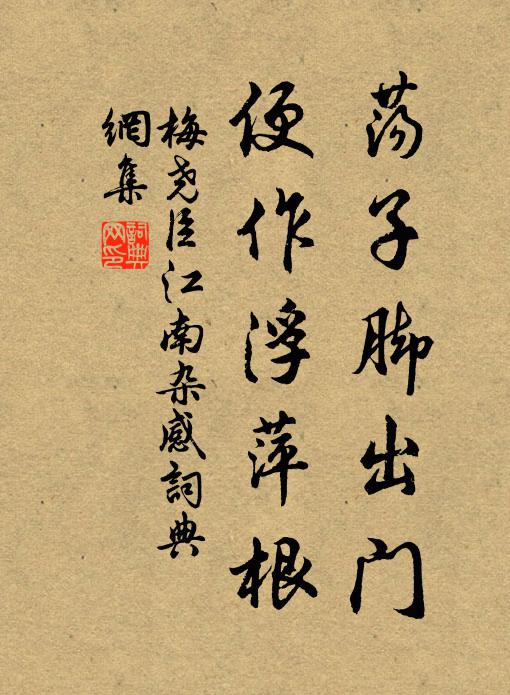 荡子脚出门
便作浮萍根
梅尧臣江南杂感词典
網集
詞典
网印